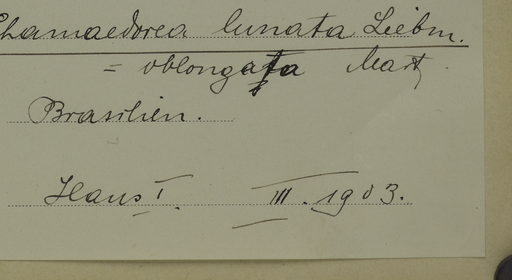 Chamaedorea lunata Liebm.
= oblongata Mart
Brasilien.
Haus I. III. 1903.